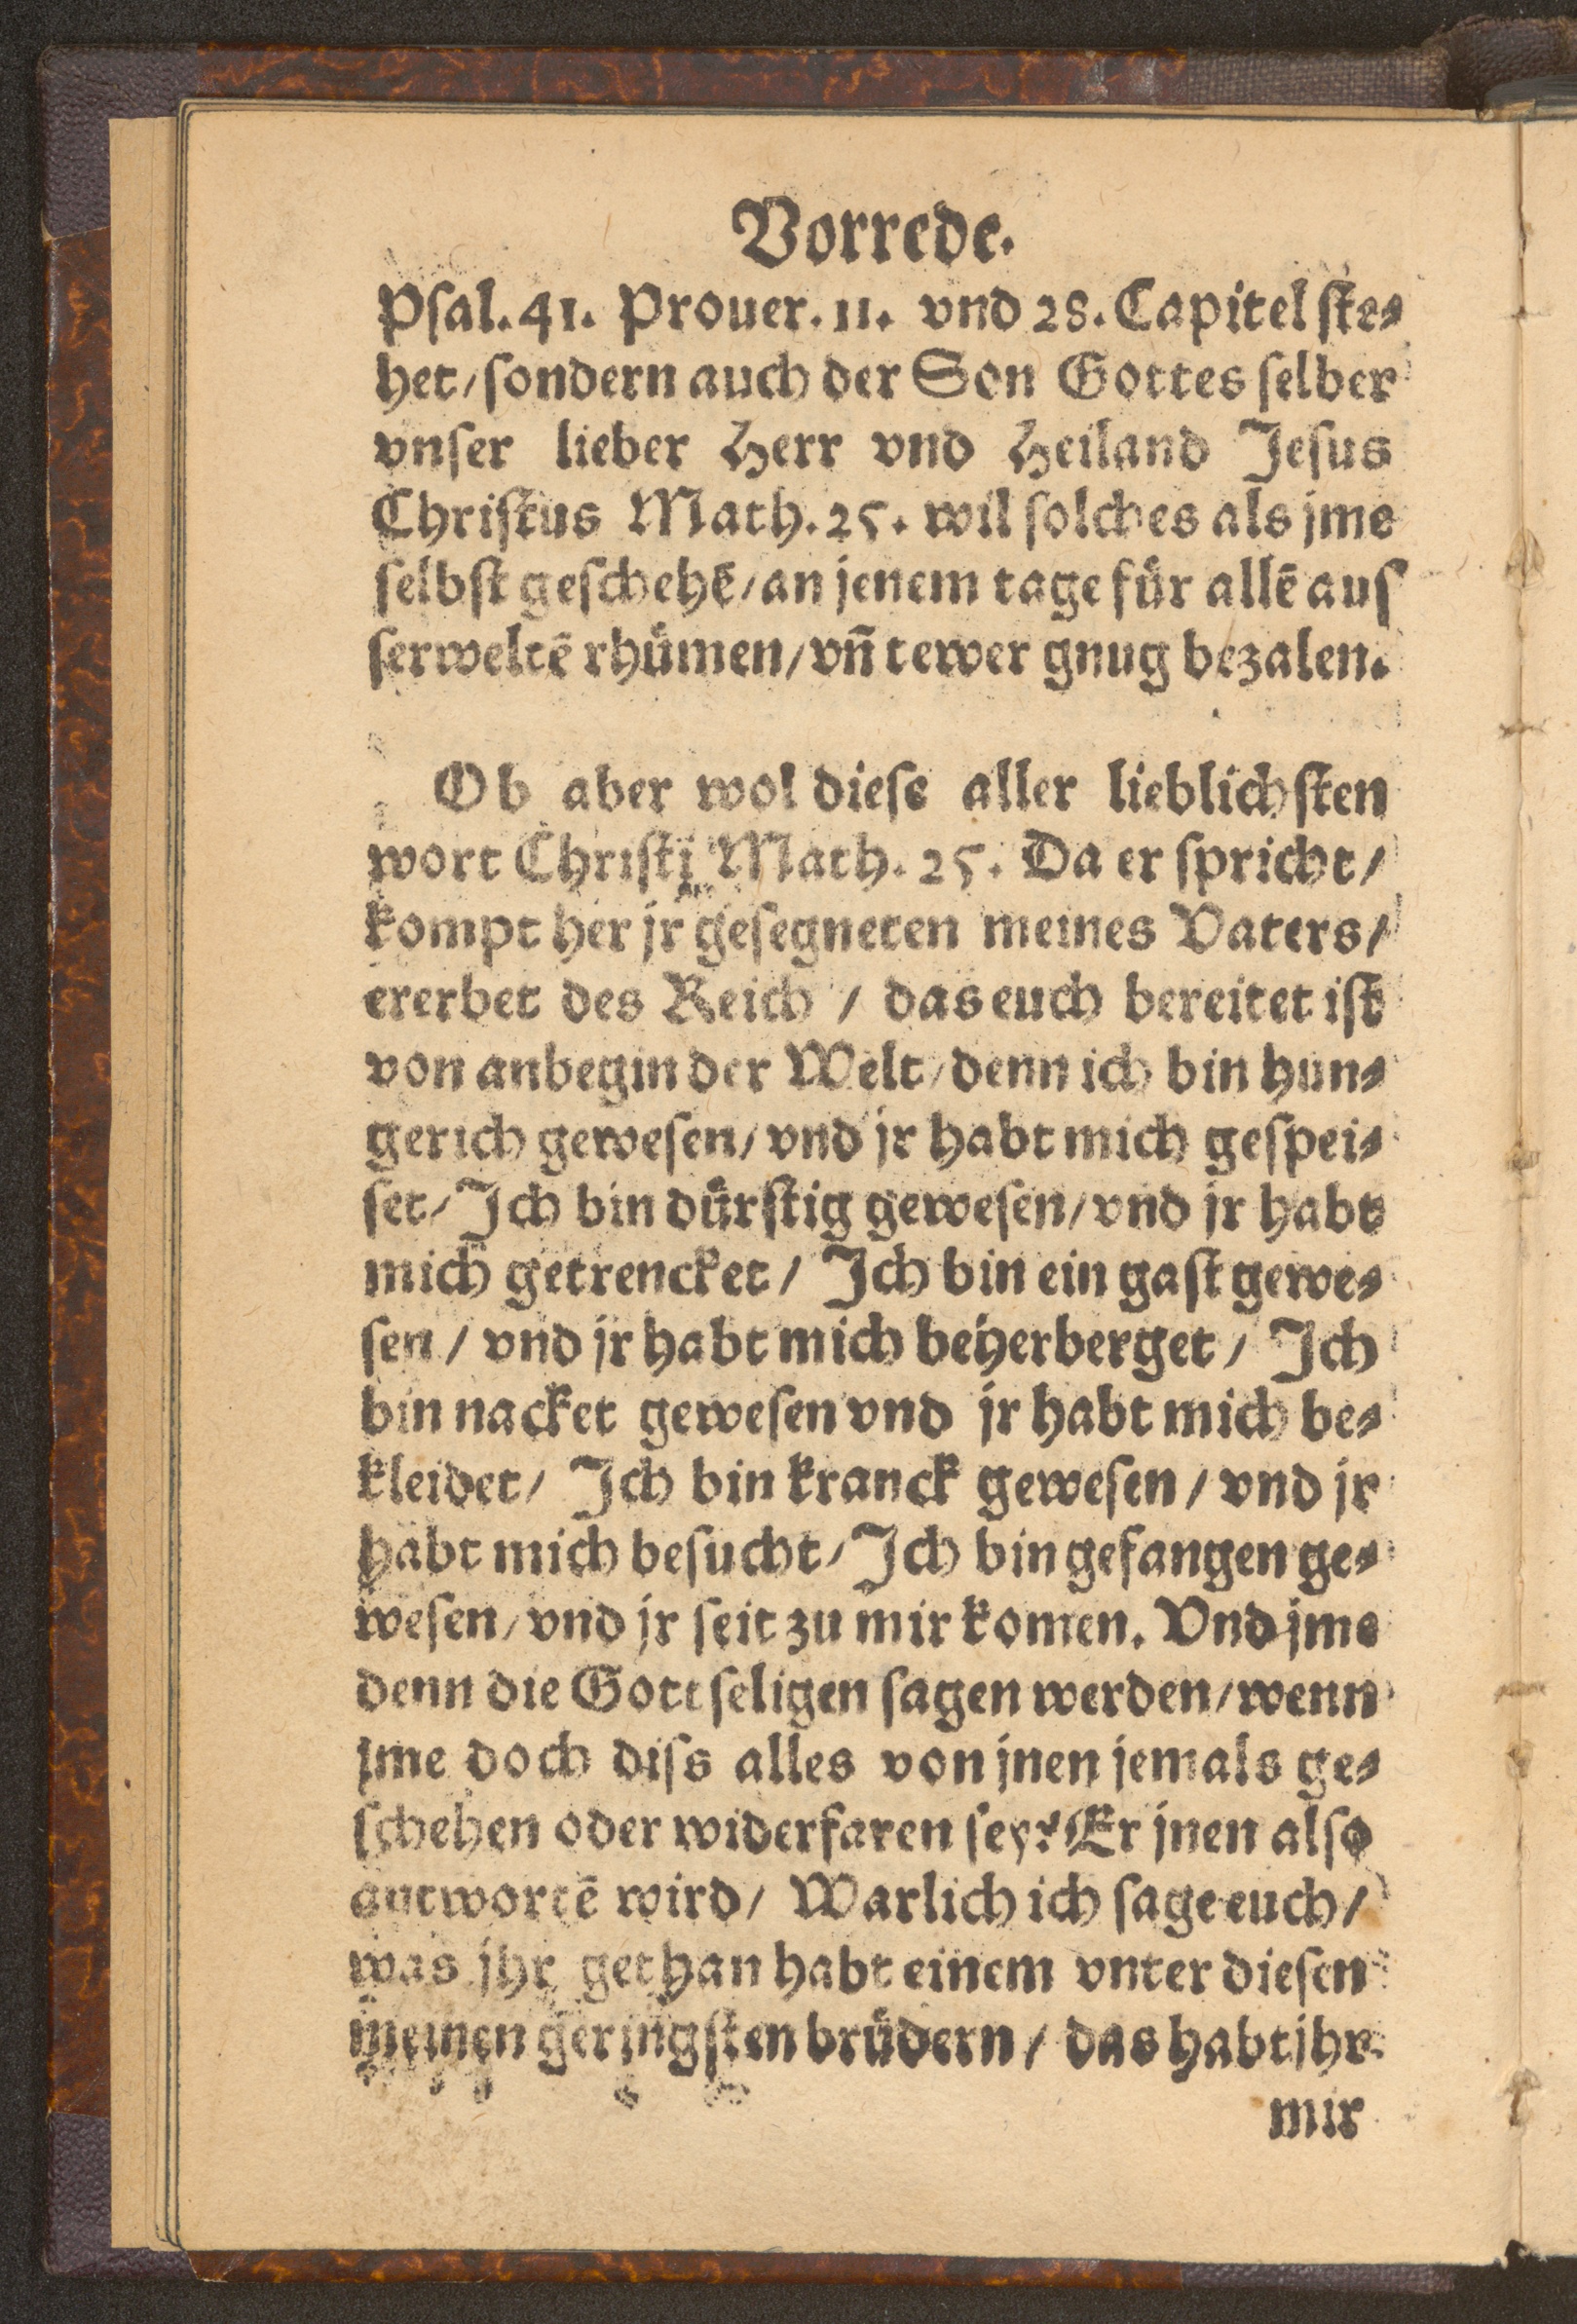 Vorrede.
Psal. 41. Prouer. 11. vnd 28. Capitel ste⸗
het / sondern auch der Son Gottes selber
vnser lieber Herr vnd Heiland Jesus
Christus Math. 25. wil solches als jme
selbst geschehē / an jenem tage für allē aus
serweltē rhümen / vn̄ tewer gnug bezalen.
Ob aber wol diese aller lieblichsten
wort Christi Math. 25. Da er spricht /
kompt her jr gesegneten meines Vaters /
ererbet des Reich / das euch bereitet ist
von anbegin der Welt / denn ich bin hun⸗
gerich gewesen / vnd jr habt mich gespei⸗
set / Ich bin dürstig gewesen / vnd jr habt
mich getrencket / Ich bin ein gast gewe⸗
sen / vnd jr habt mich beherberget / Ich
bin nacket gewesen vnd jr habt mich be⸗
kleidet / Ich bin kranck gewesen / vnd jr
habt mich besucht / Ich bin gefangen ge⸗
wesen / vnd jr seit zu mir komen. Vnd jme
denn die Gottseligen sagen werden / wenn
jme doch diss alles von jnen jemals ge⸗
schehen oder widerfaren sey? Er jnen also
antwortē wird / Warlich ich sage euch /
was jhr gethan habt einem vnter diesen
meinen geringsten brüdern / das habt jhr
mir